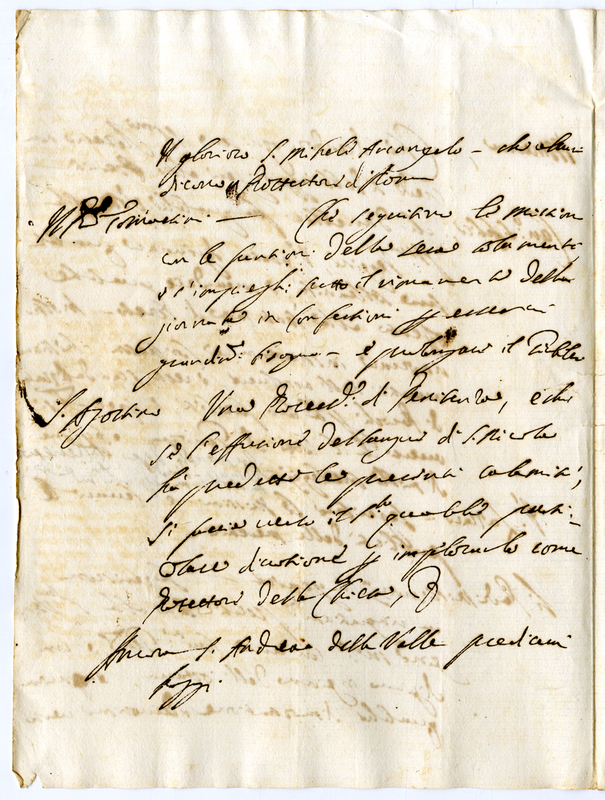 Il glorioso S. Michele Arcangelo - che alcuni
dicono Protettore di Roma
Il P. Tomasini - Che seguitino le missioni
con le funtioni della sera solamente
e s'impieghi tutto il rimanente della
giornata in confessioni per esserci
grandiss.º bisogno - e prolongare il Giubileo
S. Agostino Una Process.e di Penitenza, e che
se l'effusione del sangue di S. Nicola
hà predetto le presenti calamità,
si faccia verso il S.to qualche parti-
colare divotione per implorarlo come
Protettore della Chiesa,
Ancora S. Andrea della Valle predicani